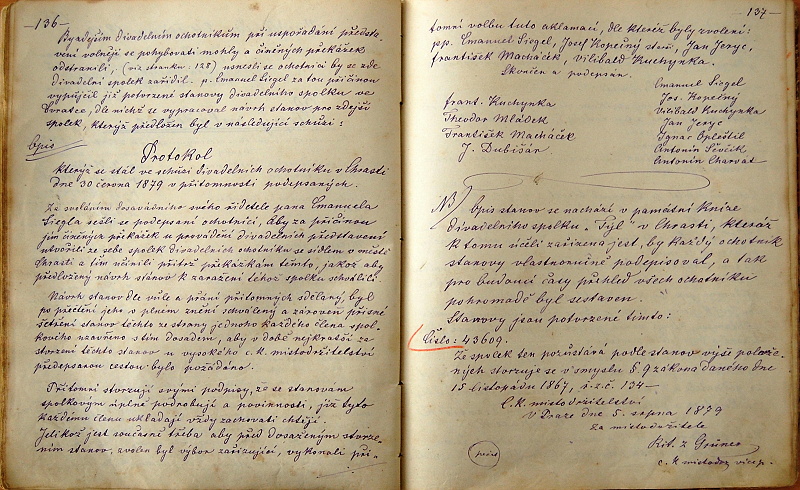 –136–
By zdejším divadelním ochotníkům při uspořádání předsta-
vení volněji se pohybovati mohly a činěných překážek
odstranili, (viz stranku 128) usnesli se ochotníci by se zde
divadelní spolek zařídil. p. Emanuel Siegel za tou příčinou
vypůjčil již potvrzené stanovy divadelního spolku ve
Vratce, dle nichž se vypracoval návrh stanov pro zdejší
spolek, kterýž předložen byl v následující schůzi:
Opis
Protokol
kterýž se stal ve schůzi divadelních ochotníku v Chrasti
dne 30 června 1879 v přítomnosti podepsaných.
Za svoláním dosavádního svého řiditele pana Emanuela
Siegla sešli se podepsaní ochotníci, aby za příčinou
jim činěných překážek v provádění divadelních představení
utvořili ze sebe spolek divadelních ochotníku se sídlem v městě
Chrasti a tím učinili přítrž překážkám těmto, jakož aby
předložený návrh stanov k zaražení téhož spolku schválili.
Návrh stanov dle vůle a přání přítomných sdělaný, byl
po přečtení jeho v plném znění schválený a zároveň přísné
šetření stanov těchto ze strany jednoho každého člena spol-
kového uzavřeno s tím dosadem, aby v době nejkratší za
stvrzení těchto stanov u vysokého c. k. místodržitelství
předepsanou cestou bylo požádáno.
Přítomní stvrzují svými podpisy, že se stanovám
spolkovým úplně podrobují a povinnosti, jíž tyto
každému členu ukládají vždy zachovati chtějí.
Jelikož jest současně třeba aby před dosaženým stvrze-
ním stanov, zvolen byl výbor zařizující, vykonali pří-
–137–
tomní volbu tuto aklamací, dle kteréž byly zvolení:
pp. Emanuel Siegel, Josef Kopečný starš, Jan Jeryc,
František Macháček, Vilibald Kuchynka.
Skončen a podepsán.
Emanuel Siegel
frant. Kuchynka Jos. Kopečný
Theodor Mládek Vilibald Kuchynka
František Macháček Jan Jeryc
J. Dubišár Ignác Opleštil
Antonín Ševčík
Antonín Charvát
NB Opis stanov se nachází v památní knize
divadelního spolku „Tyl" v Chrasti, kteráž
k tomu účeli zařízena jest, by každý ochotník
stanovy vlastnoručně podepisoval, a tak
pro budoucí časy přehled všech ochotníku
pohromadě byl sestaven.
Stanovy jsou potvrzené tímto:
Číslo: 43609.
Že spolek ten pozůstává podle stanov výše polože-
ných stvrzuje se v smyslu § 9 zákona daného dne
15 listopádu 1867, ř. z. č. 134 –
C. k. místodržitelství
v Praze dne 5. srpna 1879
Za místodržitele
Rit. z Grüneo
c. k. místodrž vicep.